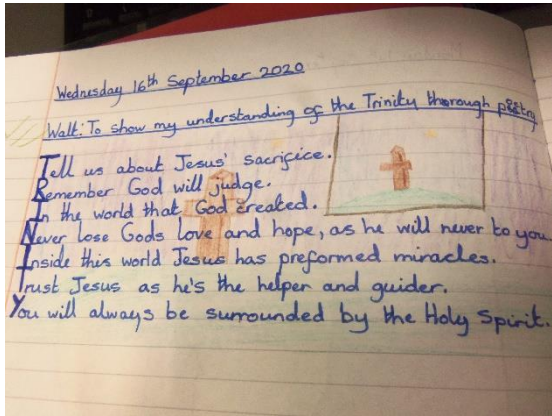 Wednesday 16th September 2020
Walt: To show my understanding of the Trinity thorough poetry
Tell us about Jesus' sacrifice.
Remember God will judge.
In the world that God created.
Never lose Gods love and hope, as he will never to you.
Inside this world Jesus has preformed miracles.
Trust Jesus as he's the helper and guider.
You will always be surrounded by the Holy Spirit.